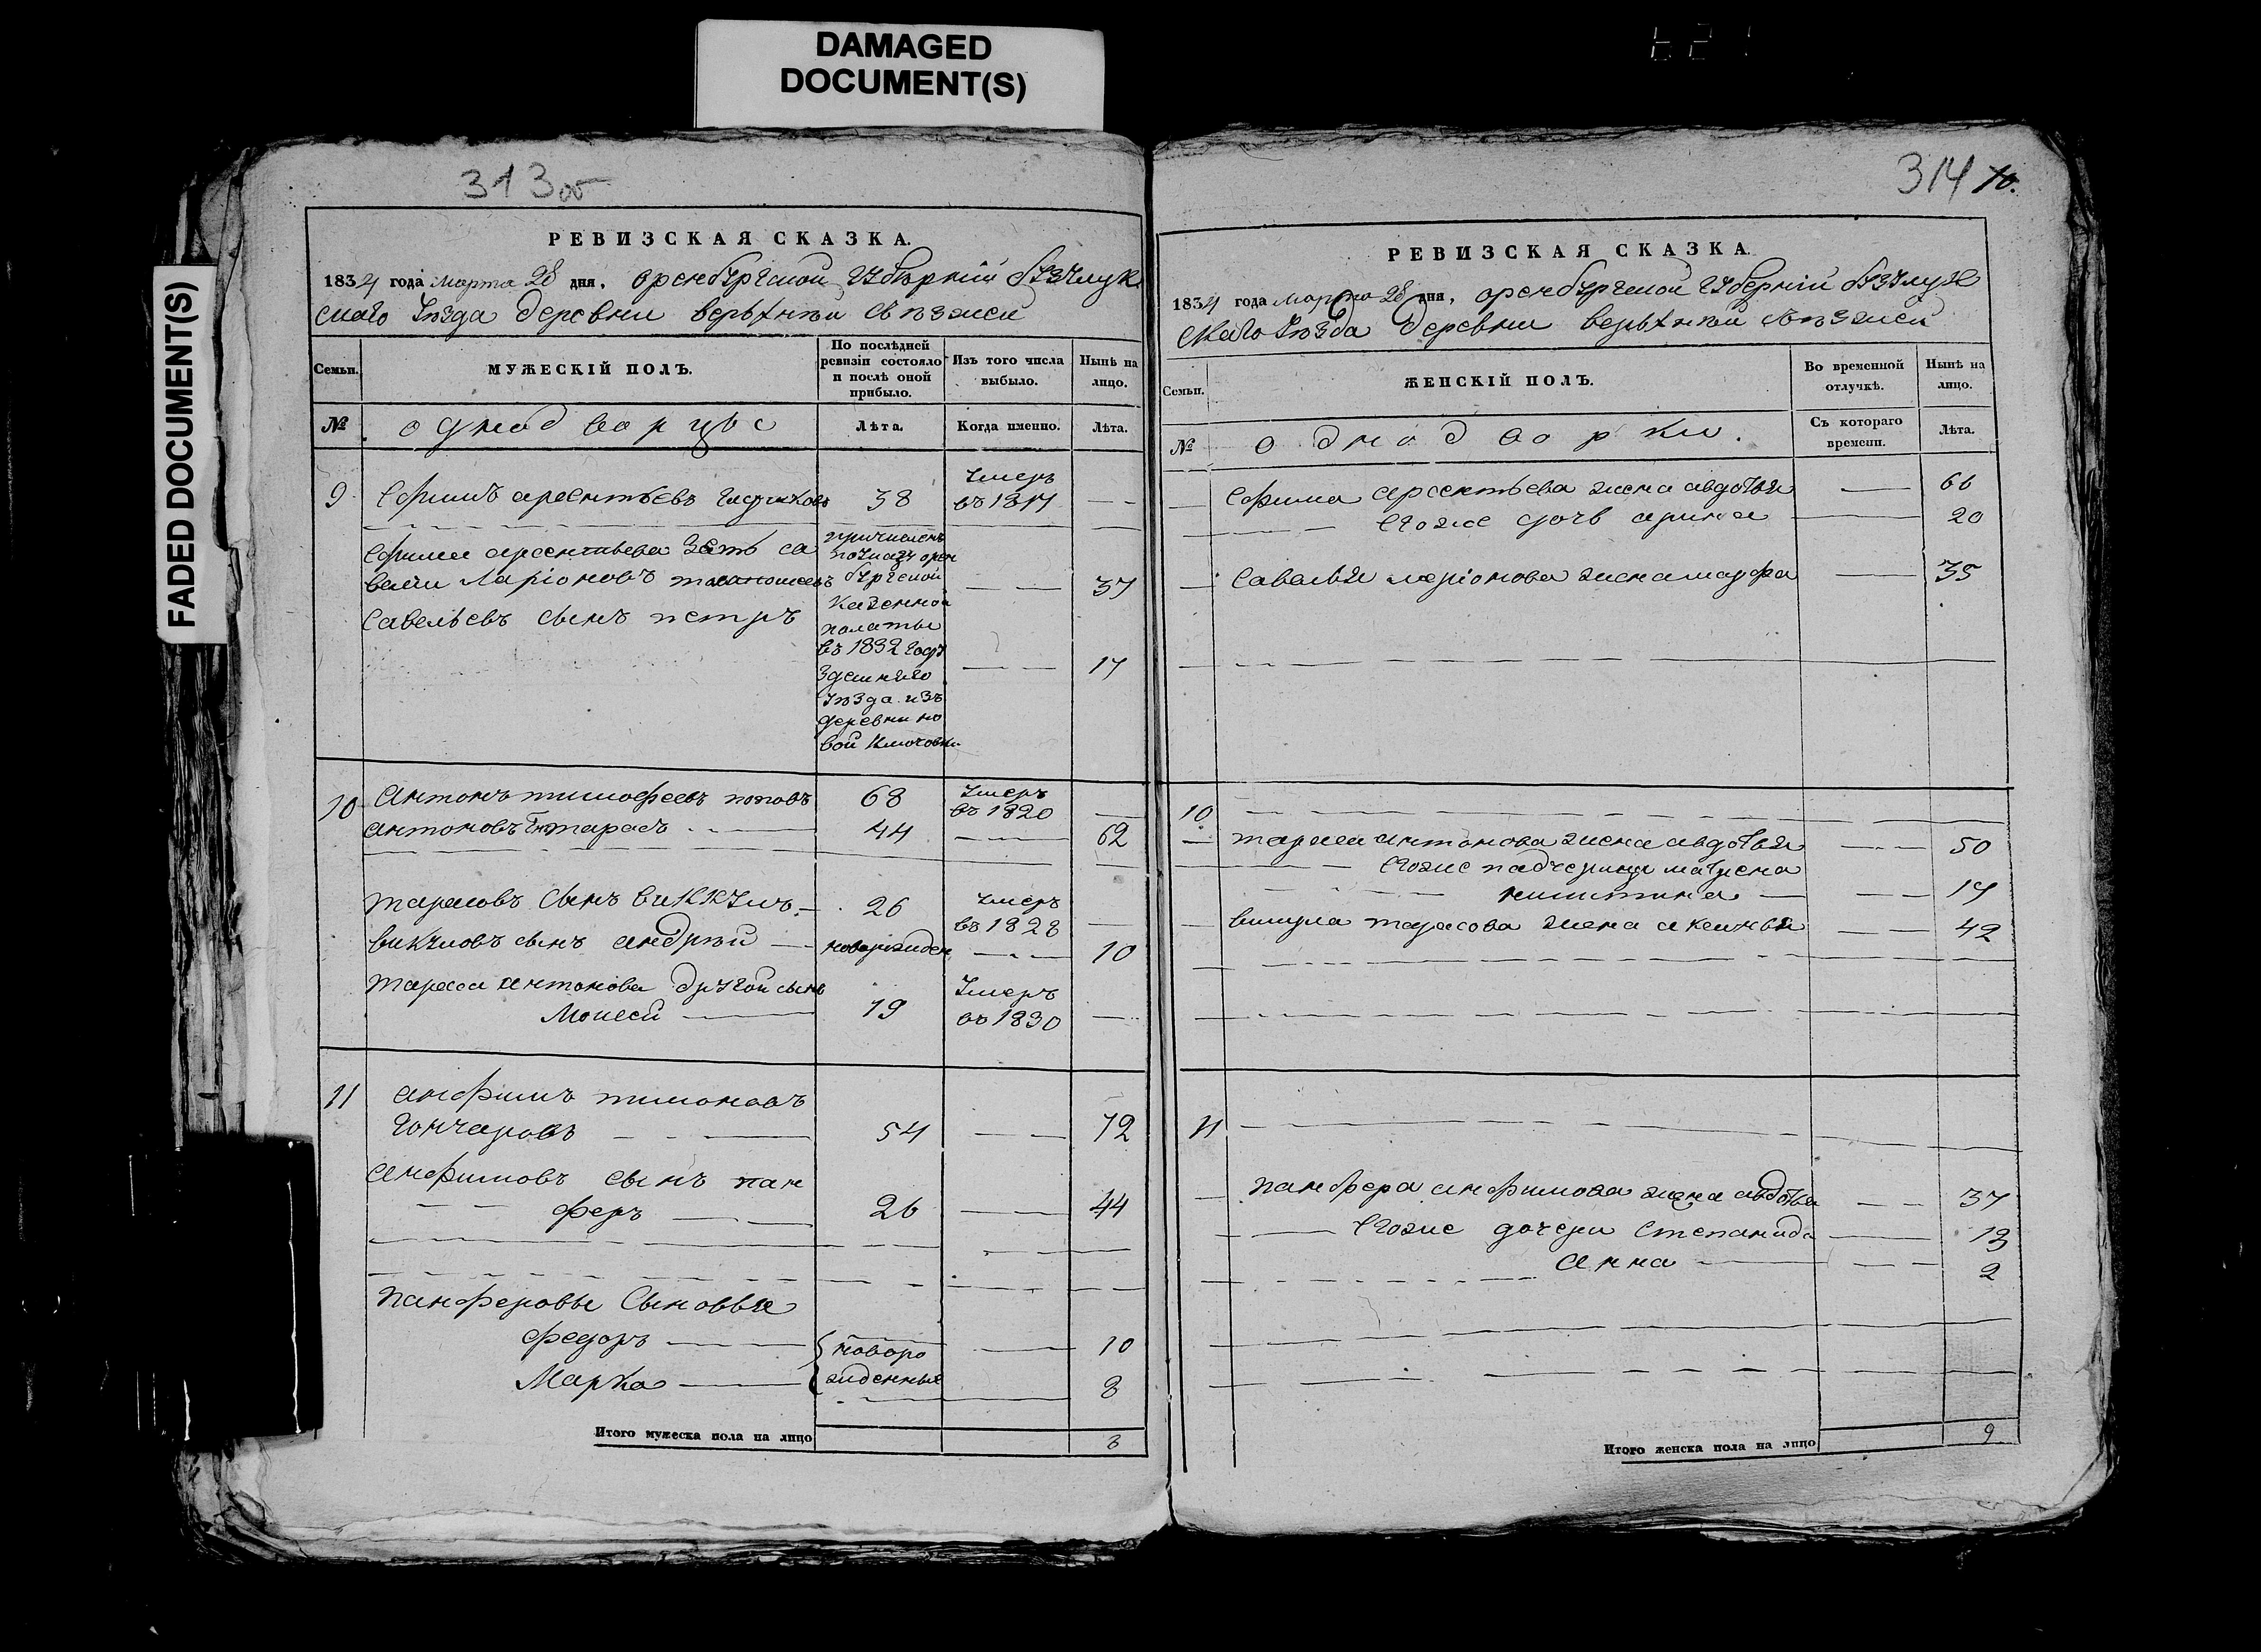 DAMAGED
DOCUMENT(S)
FADED DOCUMENT(S)
313 об
РЕВИЗСКАЯ СКАЗКА.
1834 года марта 28 дня, оренбургской губернии бузулук
скаго уезда деревни верьхней
Семьи.
МУЖЕСКІЙ ПОЛЪ.
По послѣдней ревизіи состояло и послѣ оной прибыло.
Изъ того числа выбыло.
Нынѣ на лицо.
№
однодворцы
Лѣта.
Когда именно.
Лѣта.
9
Ефимъ арсентьевъ
38
умеръ
въ 18
Ефима арсентьева зять са
велий Ларіоновъ
37
Савельевъ сынъ петръ
17
причисленъ
по указу орен
бургской
казенной
полаты
въ 1832 году
здешняго
уѣзда изъ
деревни но
вой
10
Антонъ тимофеевъ поповъ
68
умеръ
въ 1820
антоновъ тарасъ
44
62
тарасовъ сынъ
26
умеръ
въ 1828
сынъ андрей
новорожден
10
тараса антонова другой сынъ
Моисей
19
умеръ
въ 1830
11
анфимъ тимоновъ
гончаровъ
54
72
анфимовъ сынъ пан
феръ
26
44
панферовы сыновья
федоръ
новоро
10
Марка
жденные
8
Итого мужеска пола на лицо
8
314 10.
РЕВИЗСКАЯ СКАЗКА.
1834 года марта 28 дня, оренбургской губерніи бузулук
скаго уезда деревни верьхней
Семьи.
ЖЕНСКІЙ ПОЛЪ.
Во временной отлучкѣ.
Нынѣ на лицо.
№
однодворки.
Съ котораго времени.
Лѣта.
Ефима арсентьева жена авдотья
66
Егоже дочь арина
20
Савелья ларіонова жена марфа
35
10
тараса антонова жена авдотья
50
Егоже падчерица матрена
никитина
17
тарасова жена аксинья
42
11
панфера анфимова жена авдотья
37
Егоже дочери Степанида
13
Анна
2
Итого женска пола на лицо
9